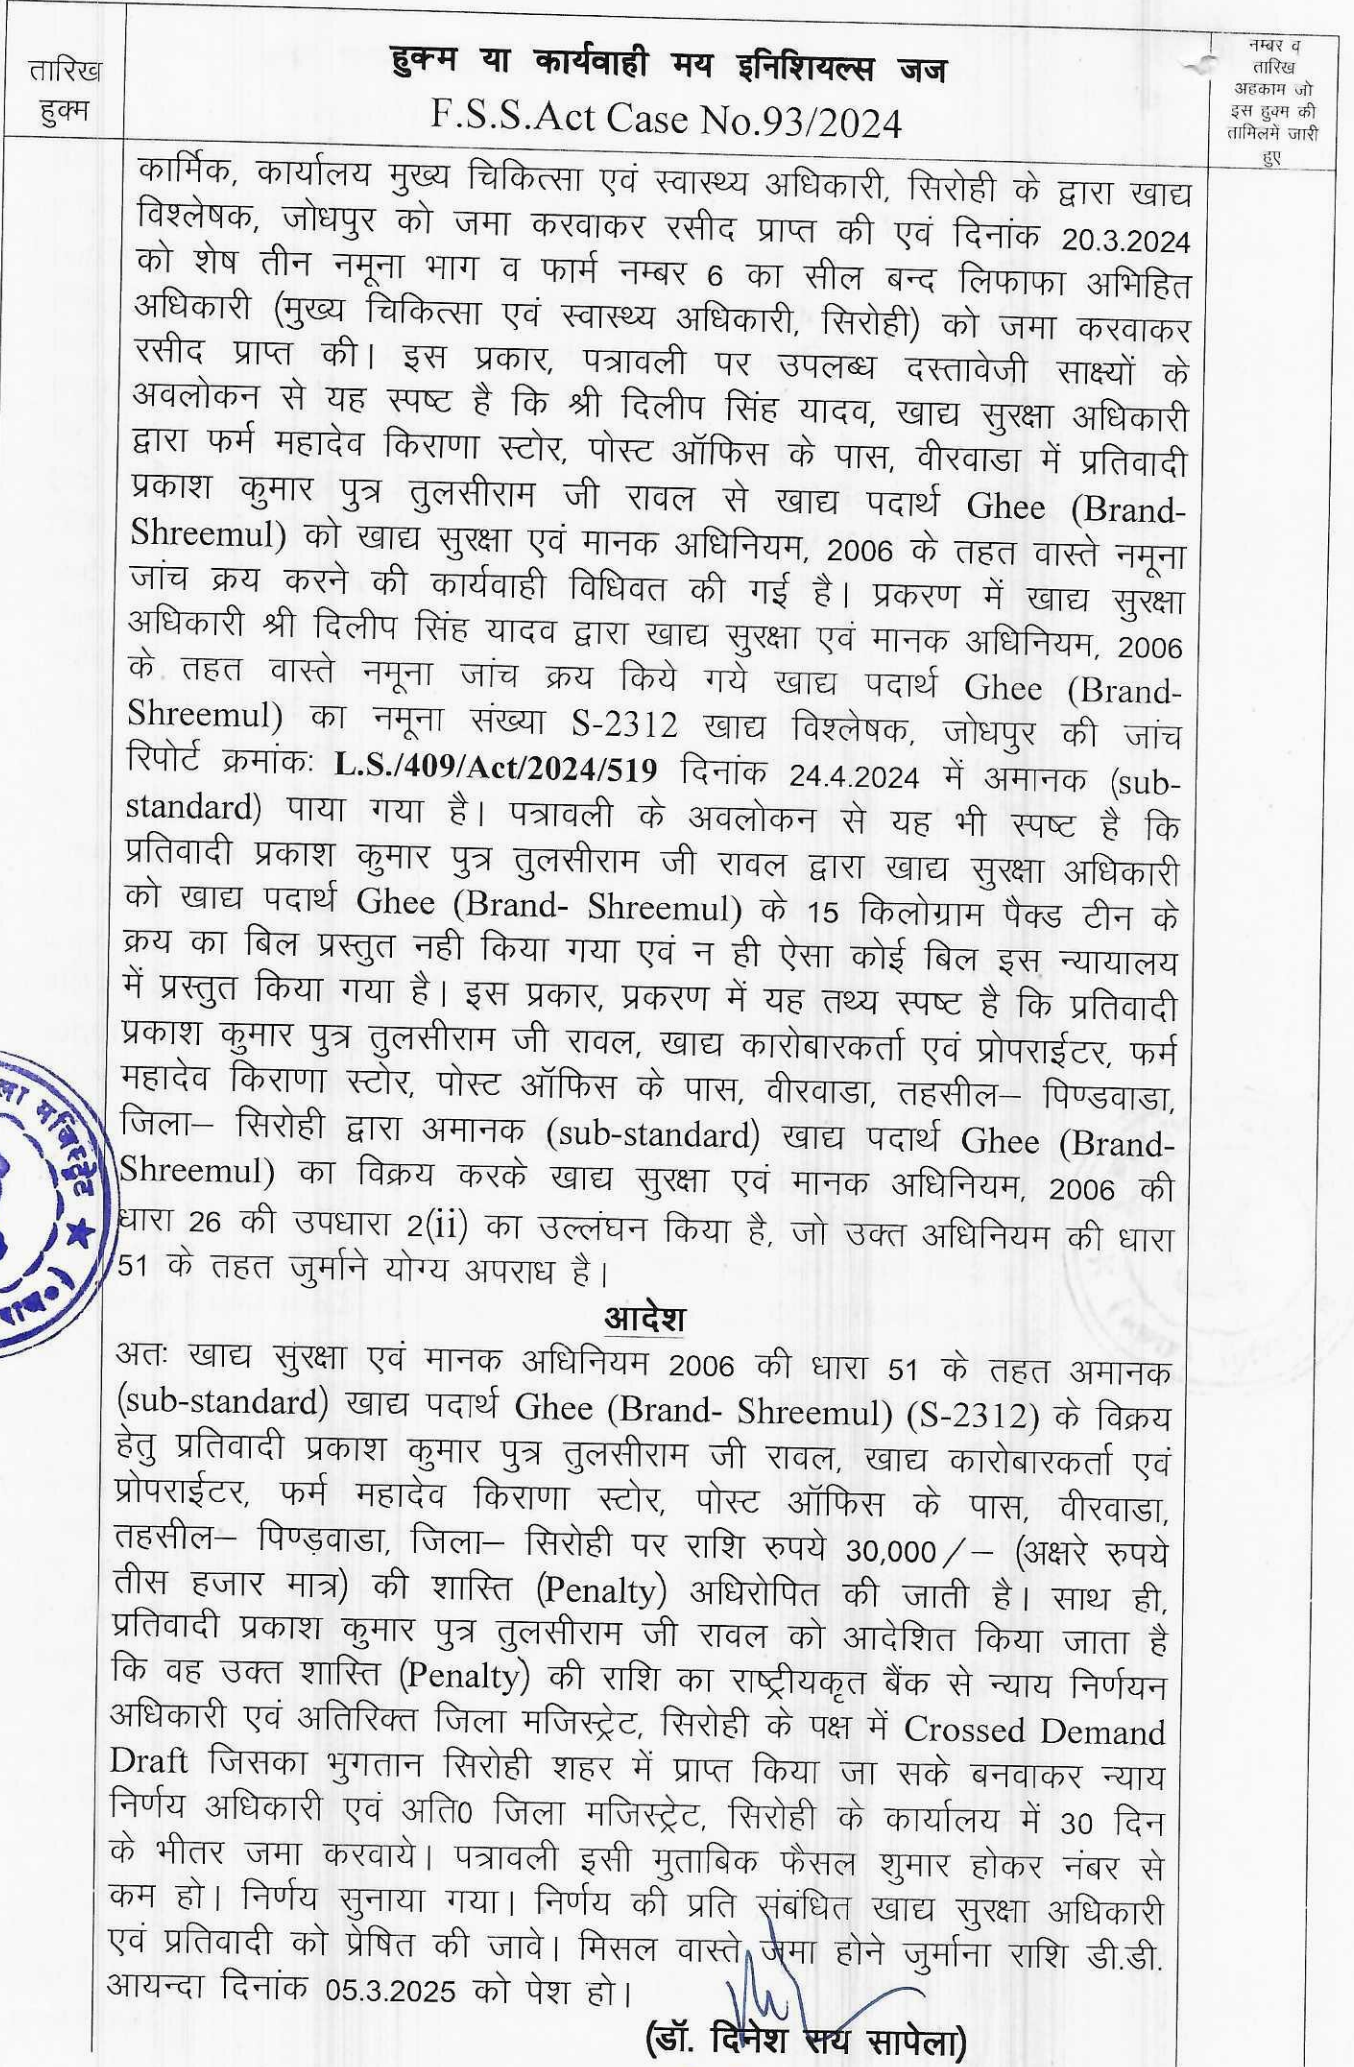 तारिख
हुक्म
हुक्म या कार्यवाही मय इनिशियल्स जज
F.S.S.Act Case No.93/2024
नम्बर व
तारिख
अहकाम जो
इस हुक्म की
तामिलमें जारी
हुए
कार्मिक, कार्यालय मुख्य चिकित्सा एवं स्वास्थ्य अधिकारी, सिरोही के द्वारा खाद्य
विश्लेषक, जोधपुर को जमा करवाकर रसीद प्राप्त की एवं दिनांक 20.3.2024
को शेष तीन नमूना भाग व फार्म नम्बर 6 का सील बन्द लिफाफा अभिहित
अधिकारी (मुख्य चिकित्सा एवं स्वास्थ्य अधिकारी, सिरोही) को जमा करवाकर
रसीद प्राप्त की। इस प्रकार, पत्रावली पर उपलब्ध दस्तावेजी साक्ष्यों के
अवलोकन से यह स्पष्ट है कि श्री दिलीप सिंह यादव, खाद्य सुरक्षा अधिकारी
द्वारा फर्म महादेव किराणा स्टोर, पोस्ट ऑफिस के पास, वीरवाडा में प्रतिवादी
प्रकाश कुमार पुत्र तुलसीराम जी रावल से खाद्य पदार्थ Ghee (Brand-
Shreemul) को खाद्य सुरक्षा एवं मानक अधिनियम, 2006 के तहत वास्ते नमूना
जांच क्रय करने की कार्यवाही विधिवत की गई है। प्रकरण में खाद्य सुरक्षा
अधिकारी श्री दिलीप सिंह यादव द्वारा खाद्य सुरक्षा एवं मानक अधिनियम, 2006
के तहत वास्ते नमूना जांच क्रय किये गये खाद्य पदार्थ Ghee (Brand-
Shreemul) का नमूना संख्या S-2312 खाद्य विश्लेषक, जोधपुर की जांच
रिपोर्ट क्रमांकः L.S./409/Act/2024/519 दिनांक 24.4.2024 में अमानक (sub-
standard) पाया गया है। पत्रावली के अवलोकन से यह भी स्पष्ट है कि
प्रतिवादी प्रकाश कुमार पुत्र तुलसीराम जी रावल द्वारा खाद्य सुरक्षा अधिकारी
को खाद्य पदार्थ Ghee (Brand- Shreemul) के 15 किलोग्राम पैक्ड टीन के
क्रय का बिल प्रस्तुत नही किया गया एवं न ही ऐसा कोई बिल इस न्यायालय
में प्रस्तुत किया गया है। इस प्रकार, प्रकरण में यह तथ्य स्पष्ट है कि प्रतिवादी
प्रकाश कुमार पुत्र तुलसीराम जी रावल, खाद्य कारोबारकर्ता एवं प्रोपराईटर, फर्म
महादेव किराणा स्टोर, पोस्ट ऑफिस के पास, वीरवाडा, तहसील– पिण्डवाडा,
जिला– सिरोही द्वारा अमानक (sub-standard) खाद्य पदार्थ Ghee (Brand-
Shreemul) का विक्रय करके खाद्य सुरक्षा एवं मानक अधिनियम, 2006 की
धारा 26 की उपधारा 2(ii) का उल्लंघन किया है, जो उक्त अधिनियम की धारा
51 के तहत जुर्माने योग्य अपराध है।
आदेश
अतः खाद्य सुरक्षा एवं मानक अधिनियम 2006 की धारा 51 के तहत अमानक
(sub-standard) खाद्य पदार्थ Ghee (Brand- Shreemul) (S-2312) के विक्रय
हेतु प्रतिवादी प्रकाश कुमार पुत्र तुलसीराम जी रावल, खाद्य कारोबारकर्ता एवं
प्रोपराईटर, फर्म महादेव किराणा स्टोर, पोस्ट ऑफिस के पास, वीरवाडा,
तहसील– पिण्डवाडा, जिला– सिरोही पर राशि रुपये 30,000/– (अक्षरे रुपये
तीस हजार मात्र) की शास्ति (Penalty) अधिरोपित की जाती है। साथ ही,
प्रतिवादी प्रकाश कुमार पुत्र तुलसीराम जी रावल को आदेशित किया जाता है
कि वह उक्त शास्ति (Penalty) की राशि का राष्ट्रीयकृत बैंक से न्याय निर्णयन
अधिकारी एवं अतिरिक्त जिला मजिस्ट्रेट, सिरोही के पक्ष में Crossed Demand
Draft जिसका भुगतान सिरोही शहर में प्राप्त किया जा सके बनवाकर न्याय
निर्णय अधिकारी एवं अति0 जिला मजिस्ट्रेट, सिरोही के कार्यालय में 30 दिन
के भीतर जमा करवाये। पत्रावली इसी मुताबिक फैसल शुमार होकर नंबर से
कम हो। निर्णय सुनाया गया। निर्णय की प्रति संबंधित खाद्य सुरक्षा अधिकारी
एवं प्रतिवादी को प्रेषित की जावे। मिसल वास्ते जमा होने जुर्माना राशि डी.डी.
आयन्दा दिनांक 05.3.2025 को पेश हो।
(डॉ. दिनेश राय सापेला)
मजिस्ट्रेट